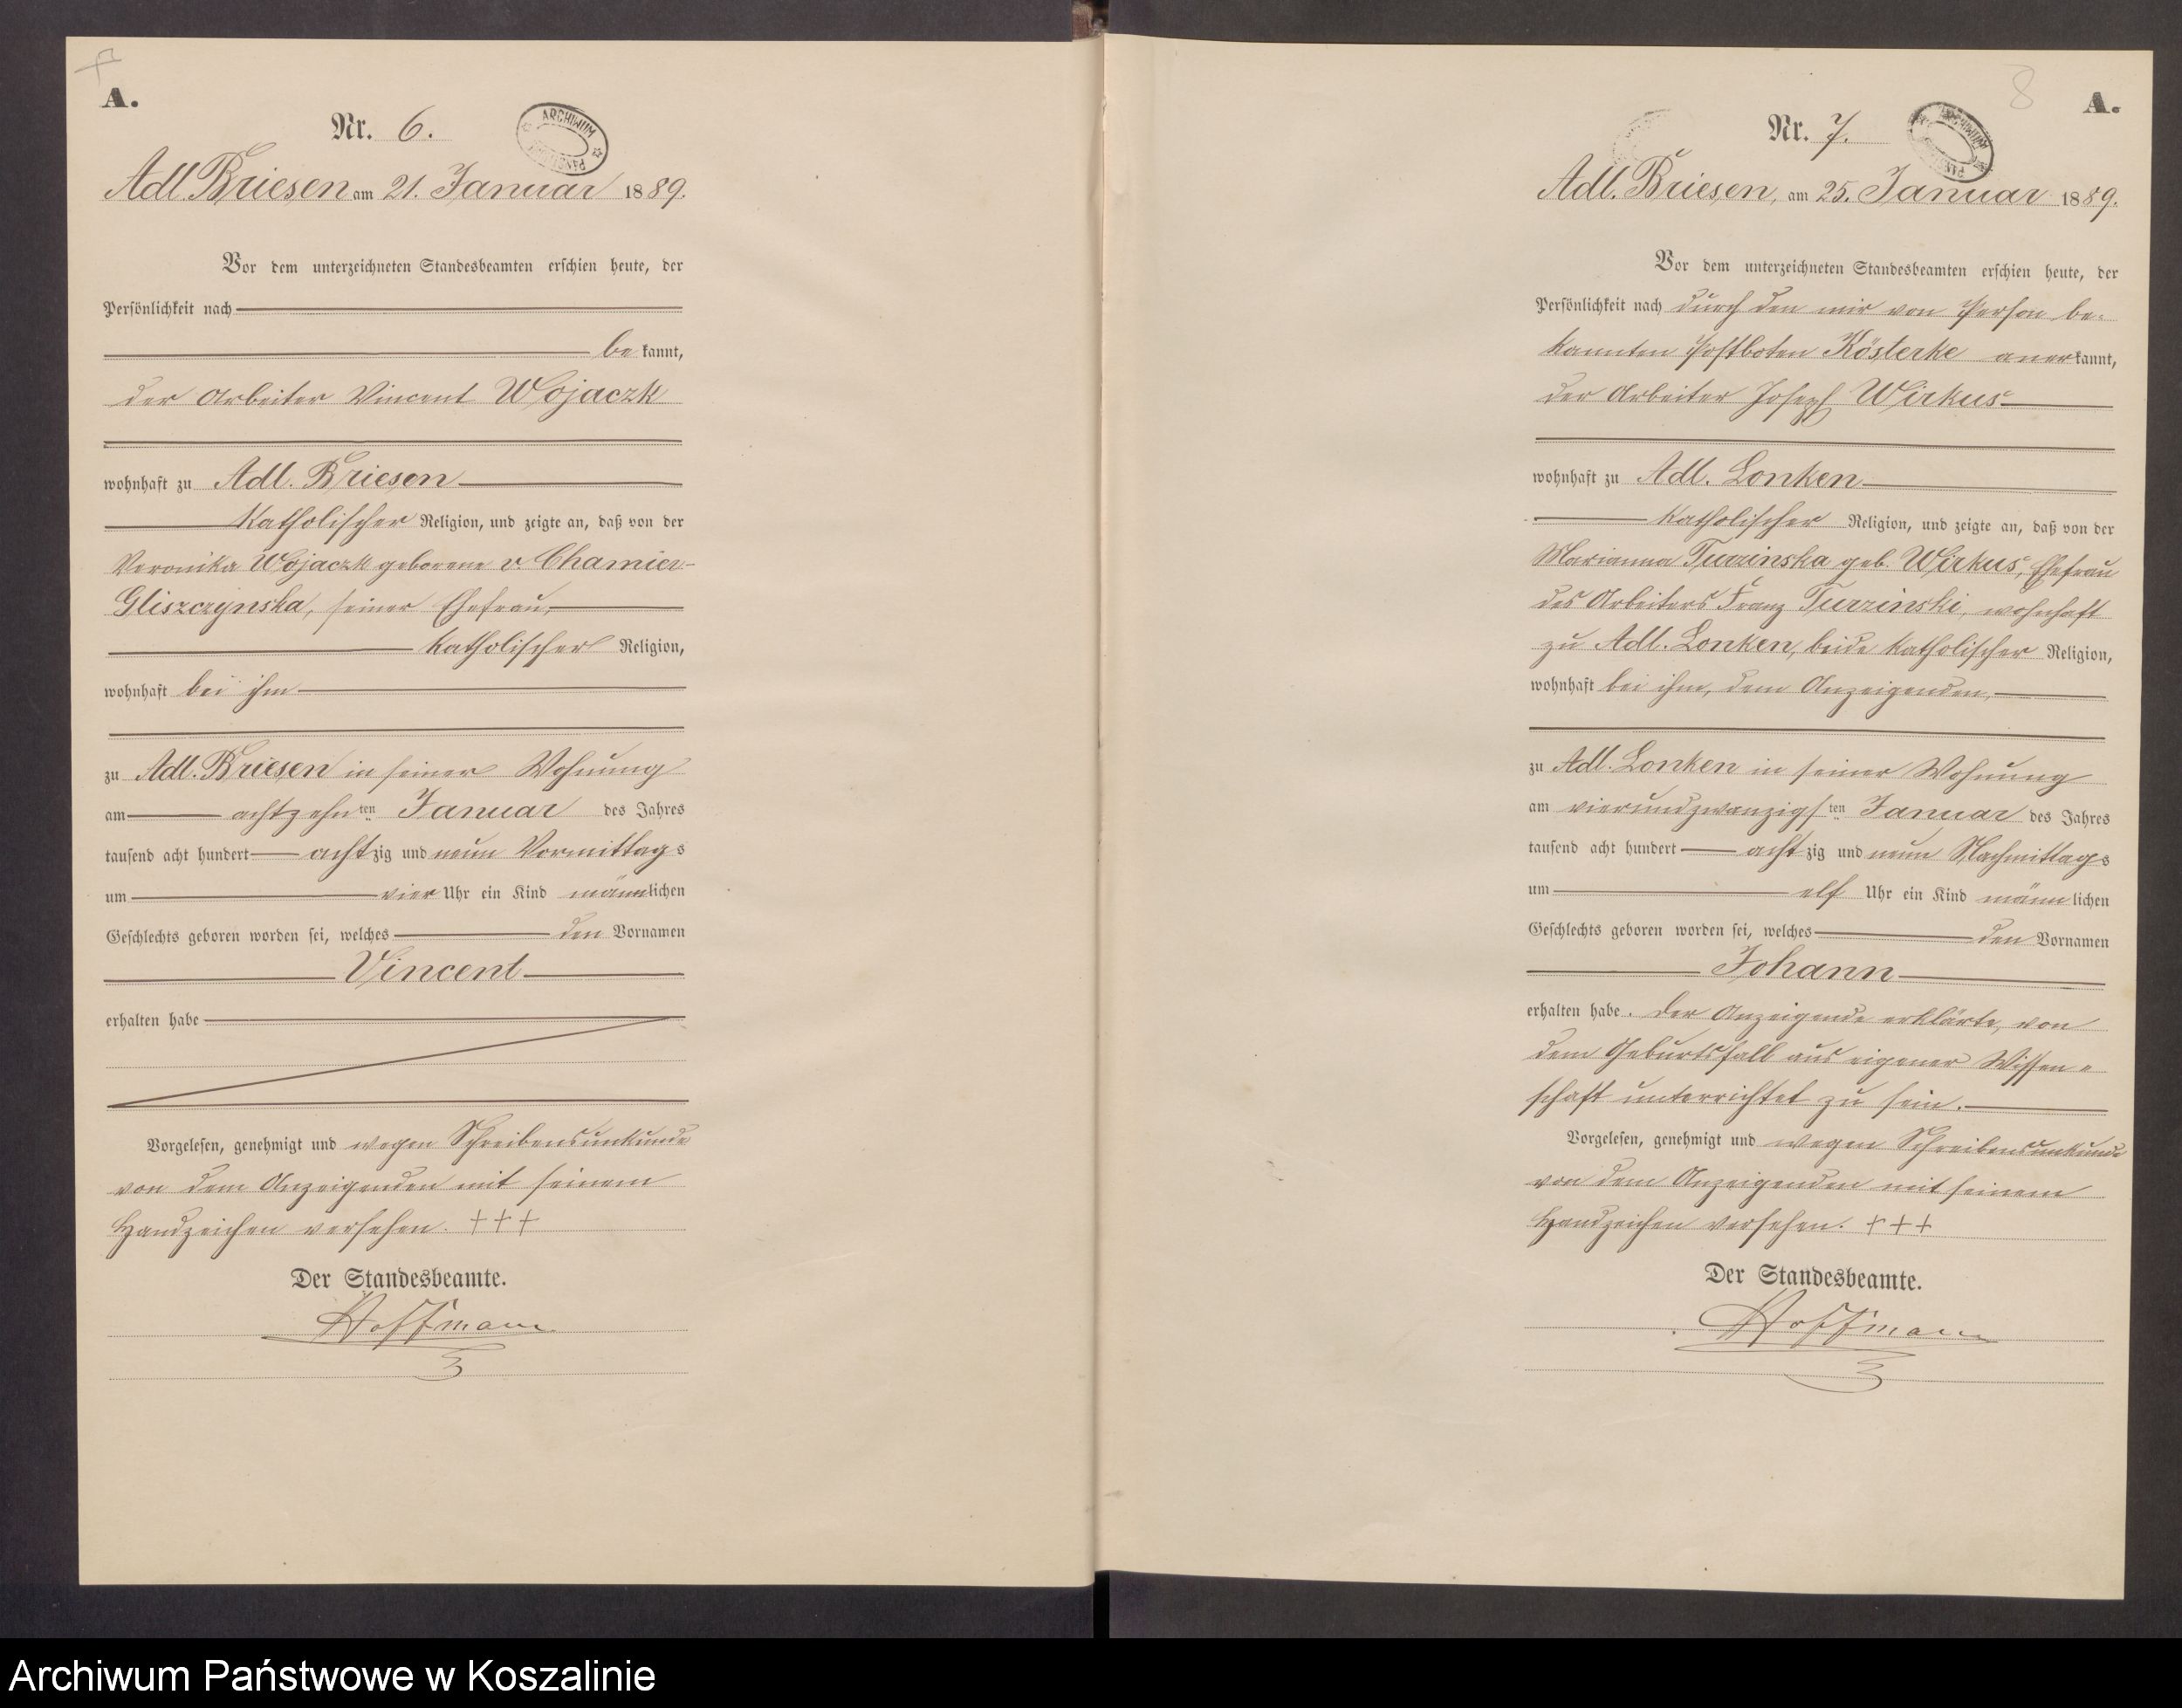 A.
Nr. 6.
ARCHIWUM
Adl. Briesen am 21. Januar 1889.
Vor dem unterzeichneten Standesbeamten erschien heute, der
Persönlichkeit nach
be kannt,
der Arbeiter Vincent Wojaczk
wohnhaft zu Adl. Briesen
katholischer Religion, und zeigte an, daß von der
Veronika Wojaczk geborene v. Chamier-
Gliszczynska, seiner Ehefrau,
katholischer Religion,
wohnhaft bei ihm
zu Adl. Briesen in seiner Wohnung
am achtzehn ten Januar des Jahres
tausend acht hundert achtzig und neun Vormittags
um vier Uhr ein Kind männlichen
Geschlechts geboren worden sei, welches den Vornamen
Vincent
erhalten habe
Vorgelesen, genehmigt und wegen Schreibensunkunde
von dem Anzeigenden mit seinem
Handzeichen versehen. +++
Der Standesbeamte.
Hoffmann
8
A.
Nr. 7.
ARCHIWUM
Adl. Briesen, am 25. Januar 1889.
Vor dem unterzeichneten Standesbeamten erschien heute, der
Persönlichkeit nach durch den mir von Person be-
kannten Postboten Kösterke anerkannt,
der Arbeiter Joseph Wirkus
wohnhaft zu Adl. Lonken
katholischer Religion, und zeigte an, daß von der
Marianna Turzinska geb. Wirkus, Ehefrau
des Arbeiters Franz Turzinski, wohnhaft
zu Adl. Lonken, beide katholischer Religion,
wohnhaft bei ihm, dem Anzeigenden,
zu Adl. Lonken in seiner Wohnung
am vierundzwanzigsten Januar des Jahres
tausend acht hundert achtzig und neun Nachmittags
um elf Uhr ein Kind männlichen
Geschlechts geboren worden sei, welches den Vornamen
Johann
erhalten habe. Der Anzeigende erklärte, von
dem Geburtsfall aus eigener Wissen-
schaft unterrichtet zu sein.
Vorgelesen, genehmigt und wegen Schreibensunkunde
von dem Anzeigenden mit seinem
Handzeichen versehen. +++
Der Standesbeamte.
Hoffmann
Archiwum Państwowe w Koszalinie